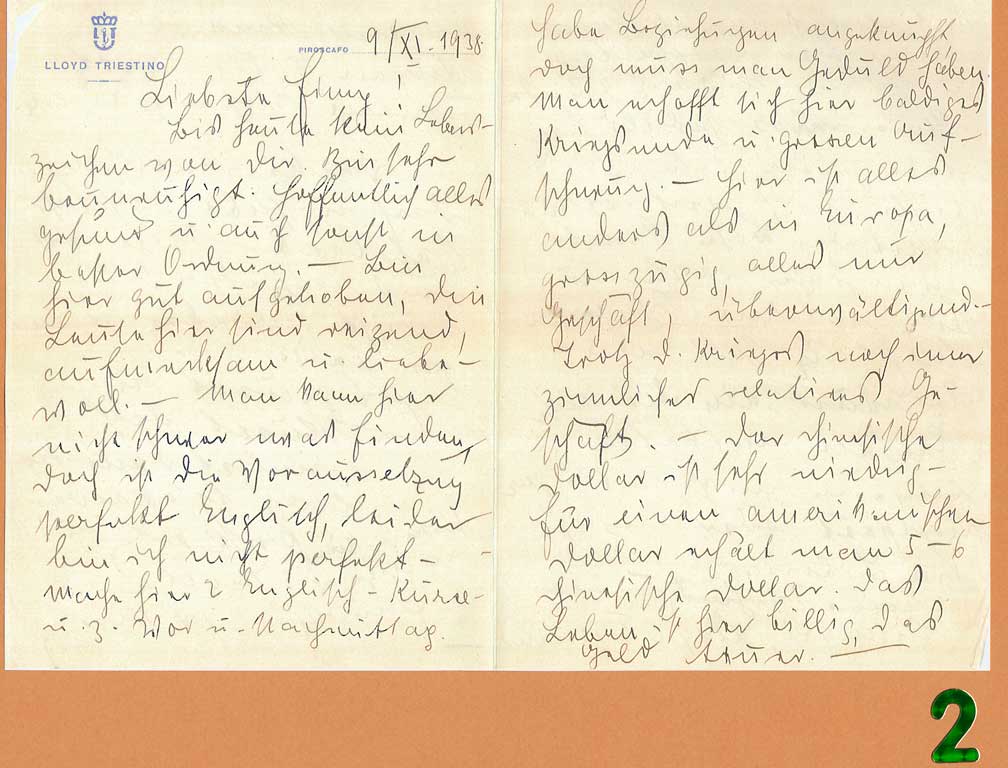 LLOYD TRIESTINO
PIROSCAFO 9/XI.-1938
Liebste Finny!
Bis heute kein Lebens-
zeichen von Dir. Bin sehr
beunruhigt. Hoffentlich alles
gesund u. auch sonst in
bester Ordnung. — Bin
hier gut aufgehoben, die
Leute hier sind reizend,
aufmerksam u. liebe-
voll. — Man kann hier
nicht schwer was finden,
doch ist die Voraussetzung
perfekt Englisch, leider
bin ich nicht perfekt —
mache hier 2 Englisch-Kurse -
u. z. Vor u. Nachmittag.
habe Beziehungen angeknüpft
doch muss man Geduld haben.
Man erhofft sich hier baldiges
Kriegsende u. grossen Auf-
schwung. — Hier ist alles
anders als in Europa,
grosszügig, alles nur
Geschäft, überwältigend. —
Trotz d. Krieges noch immer
ziemliches relatives Ge-
schäft. — Der chinesische
Dollar ist sehr niedrig —
für einen amerikanischen
Dollar erhält man 5-6
chinesische Dollar. Das
Leben ist hier billig, das
Geld teuer. —
2